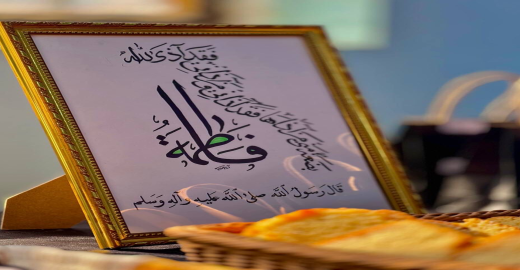 قال رسول الله صلى الله عليه وآله وسلم
فاطمة
بضعة مني من آذاها فقد آذاني ومن آذاني
فقد آذى الله